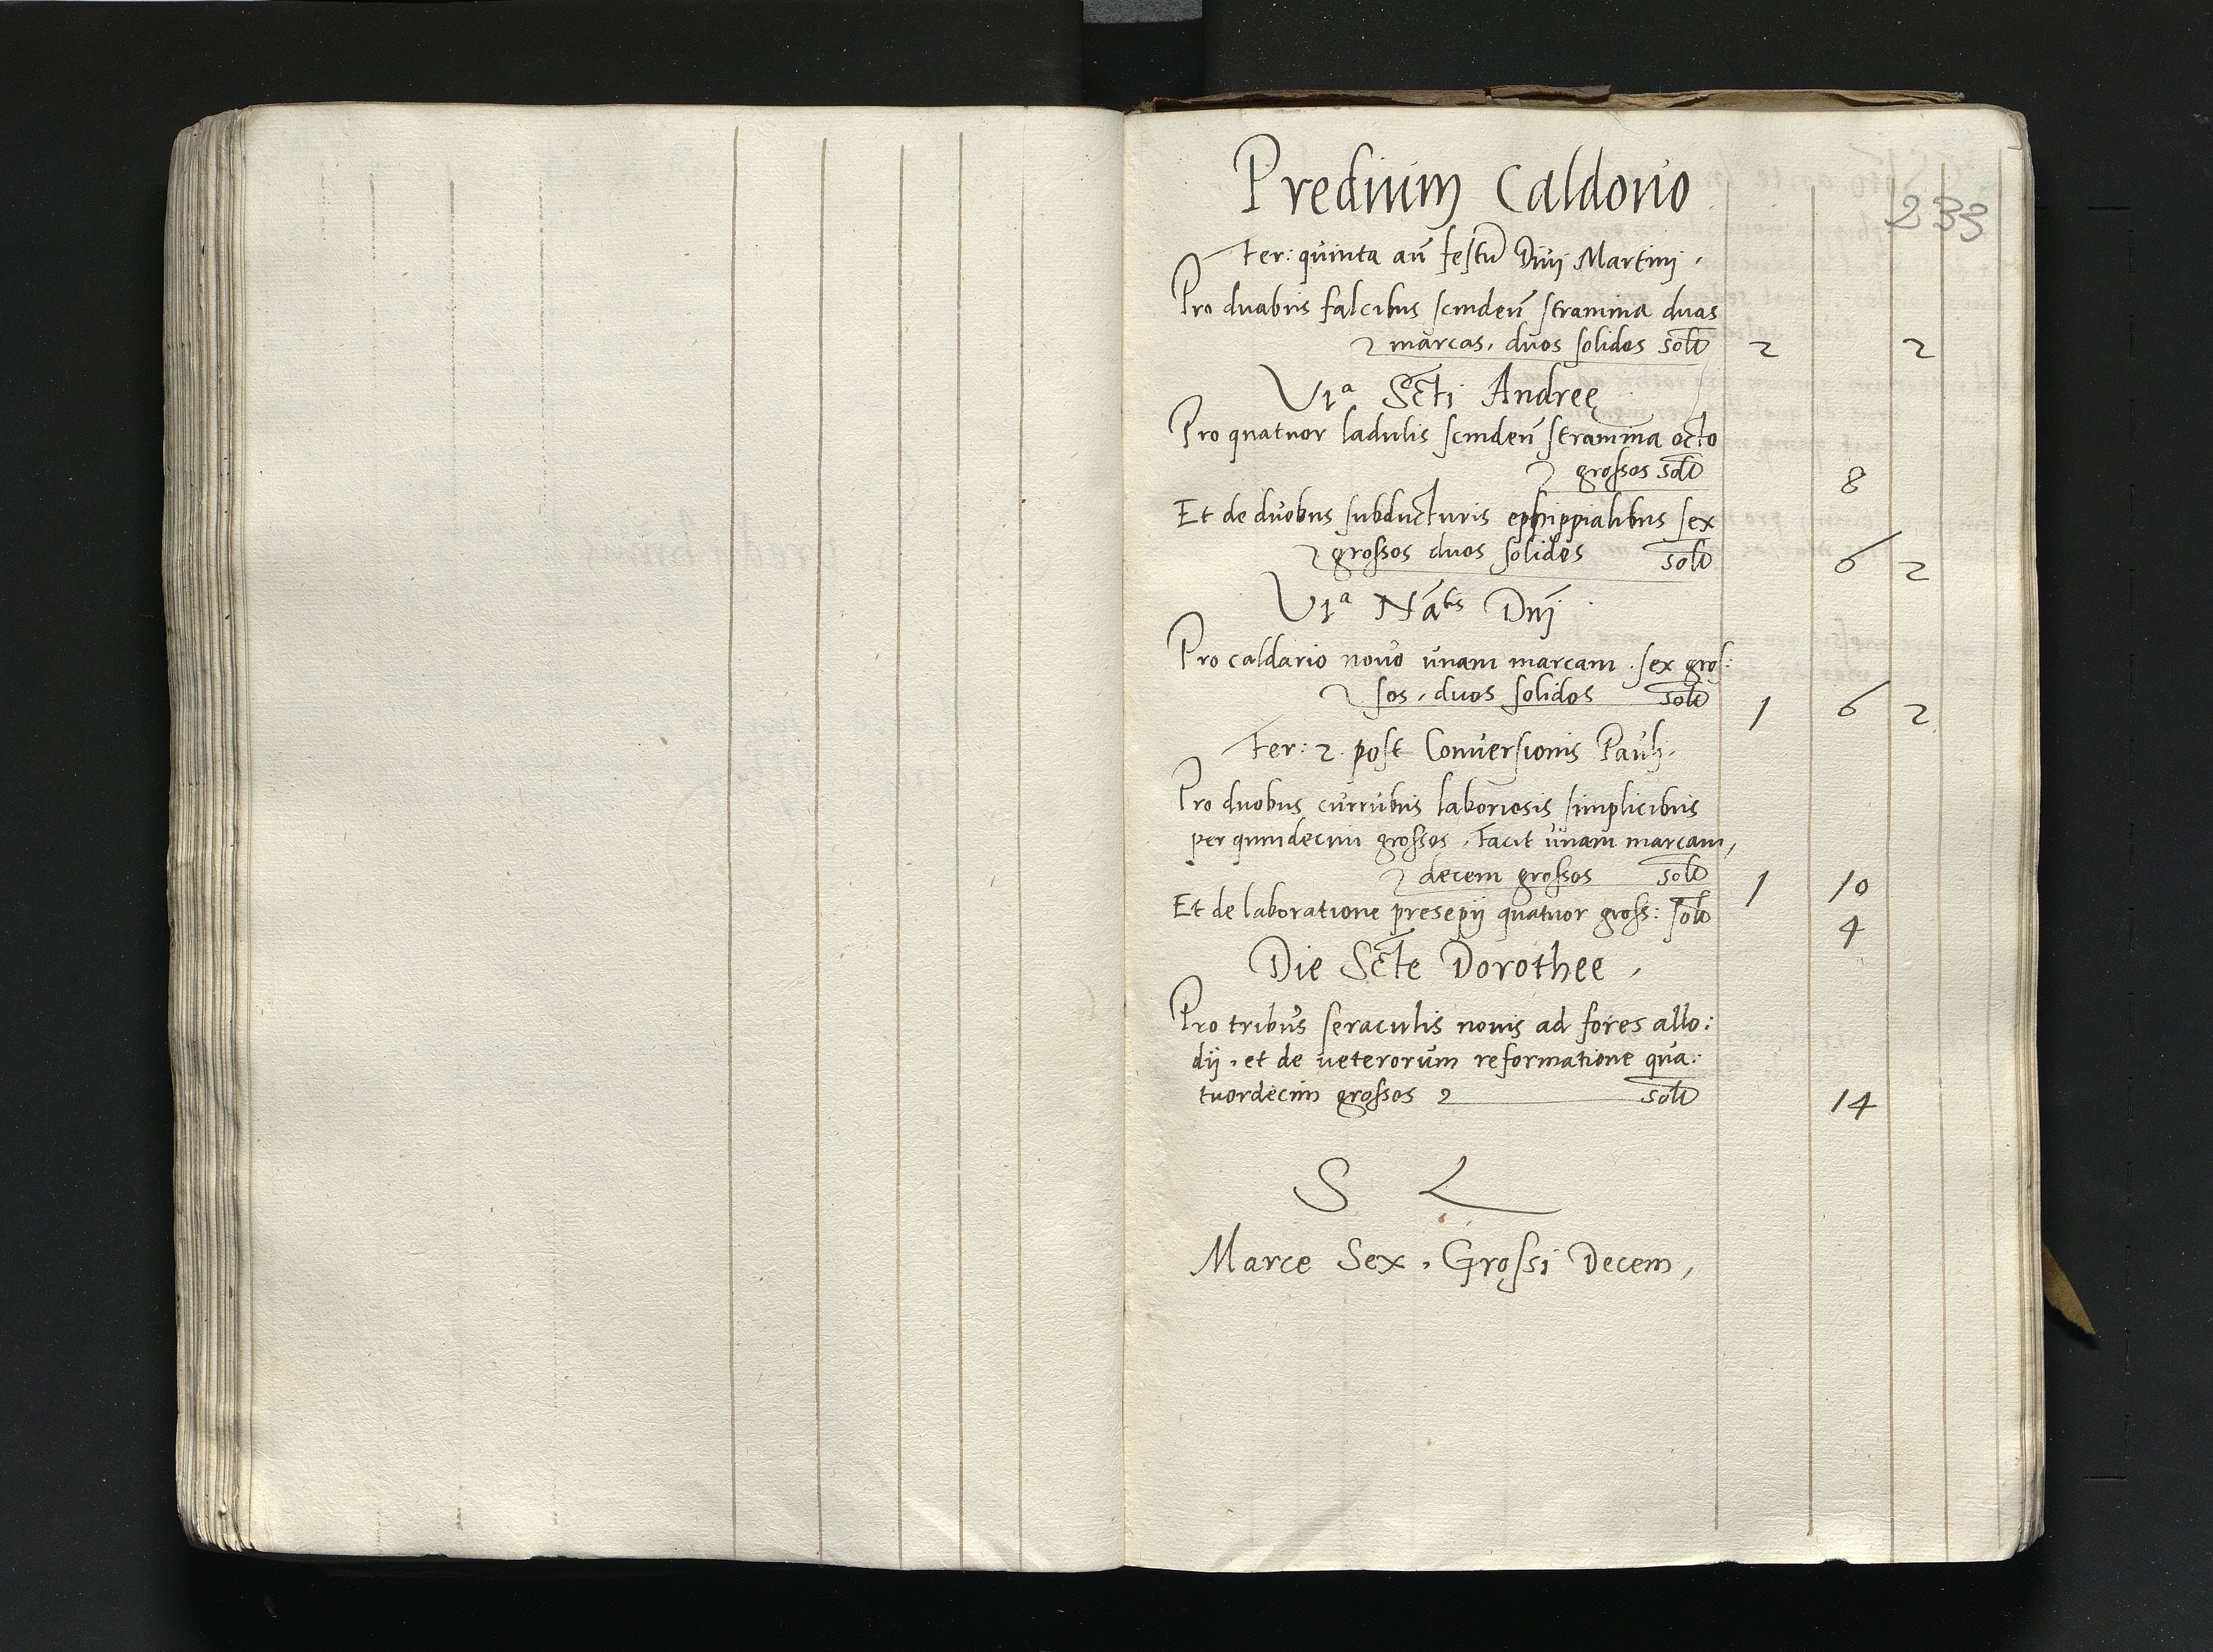 Predium Caldovo
233
Fer: quinta añ festũ Divi Martini.
Pro duabus falcibus scindeñ stramina duas
marcas, duos solidos solũ 2 2
Vɪᵃ Scti Andreę
Pro quatuor ladulis scindeñ stramina octo
grossos solũ 8
Et de duobus subducturis ephippialibus sex
grossos duos solidos solũ 6 2
Vɪᵃ Natis Dnj
Pro caldario novo unam marcam. sex gros:
sos, duos solidos solũ 1 6 2
Fer: 2. post Conversionis Pauli.
Pro duobus curribus laboriosis simplicibus
per quindecim grossos. Facit unam marcam,
decem grossos solũ 1 10
Et de laboratione presepij quatuor gross: solũ 4
Die Scte Dorothee,
Pro tribus seraculis novis ad fores allo:
dij, et de veterorum reformatione qua:
tuordecim grossos solũ 14
S L
Marce Sex, Grossi Decem,